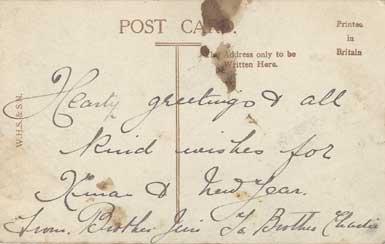 POST CARD.
Printed
in
Britain
The Address only to be
Written Here.
W.H.S. & S.N.
Hearty greetings & all
kind wishes for
Xmas & New Year.
from Brother Jim To Brother Charlie